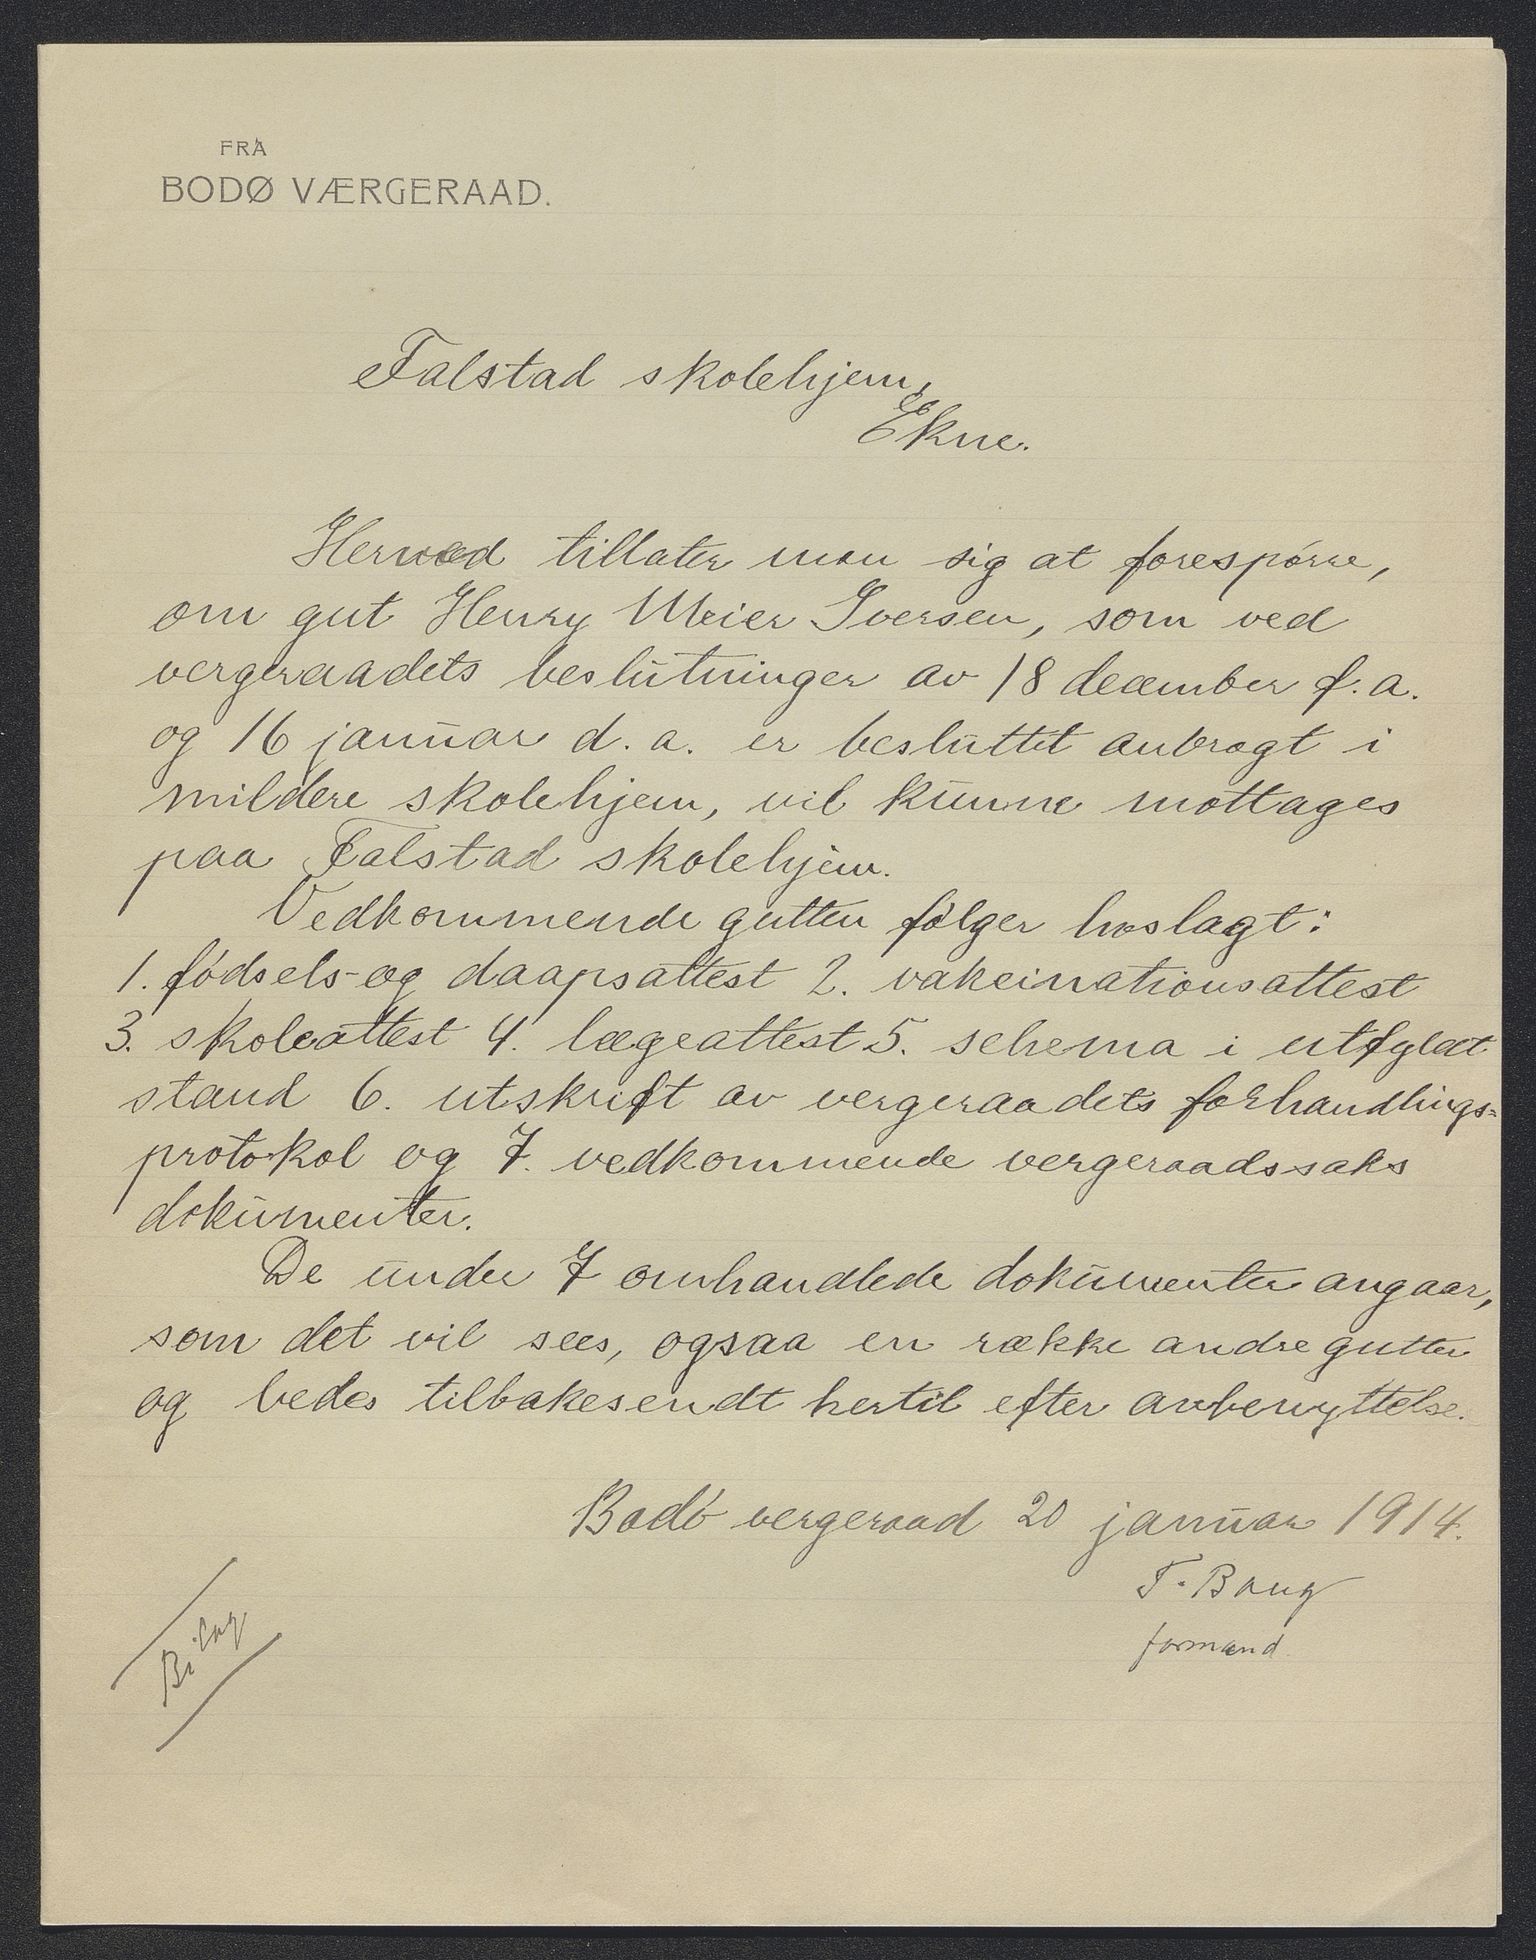 FRA
BODØ VÆRGERAAD.
Falstad skolehjem,
Ekne.
Herved tillater man sig at forespørre,
om gut Henry Meier Iversen, som ved
vergeraadets beslutninger av 18 december f. a.
og 16 januar d. a. er besluttet anbragt i
mildere skolehjem, vil kunne mottages
paa Falstad skolehjem.
Vedkommende gutten følger hoslagt:
1. fødsels- og daapsattest 2. vakcinationsattest
3. skoleattest 4. lægeattest 5. schema i utfyldt
stand 6. utskrift av vergeraadets forhandlings=
protokol og 7. vedkommende vergeraadssaks
dokumenter.
De under 7 omhandlede dokumenter angaar,
som det vil sees, ogsaa en række andre gutter
og bedes tilbakesendt hertil efter avbenyttelse.
Bodø vergeraad 20 januar 1914.
F. Bang
formand
Bilag